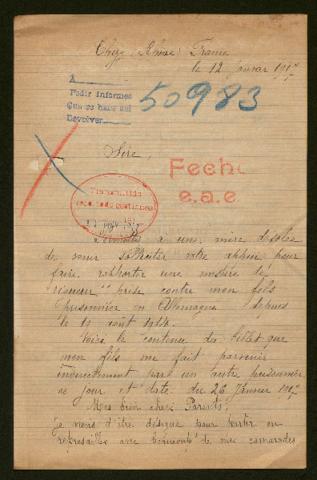 Thizy (Rhône) France
le 12 janvier 1917
A
Pedir informes
Que se hace así
Devolver
50983
Sire,
Fecho
e.a.e
Permettez à une mère désolée
de venir solliciter votre appui pour
faire rapporter une mesure de
rigueur prise contre mon fils
prisonnier en Allemagne depuis
le août
Voici le contenu du billet que
mon fils me fait parvenir
indirectement par un autre prisonnier
ce jour et daté du 26
Mes bien chers Parents,
je viens d'être désigné pour partir en
représailles avec beaucoup de mes camarades